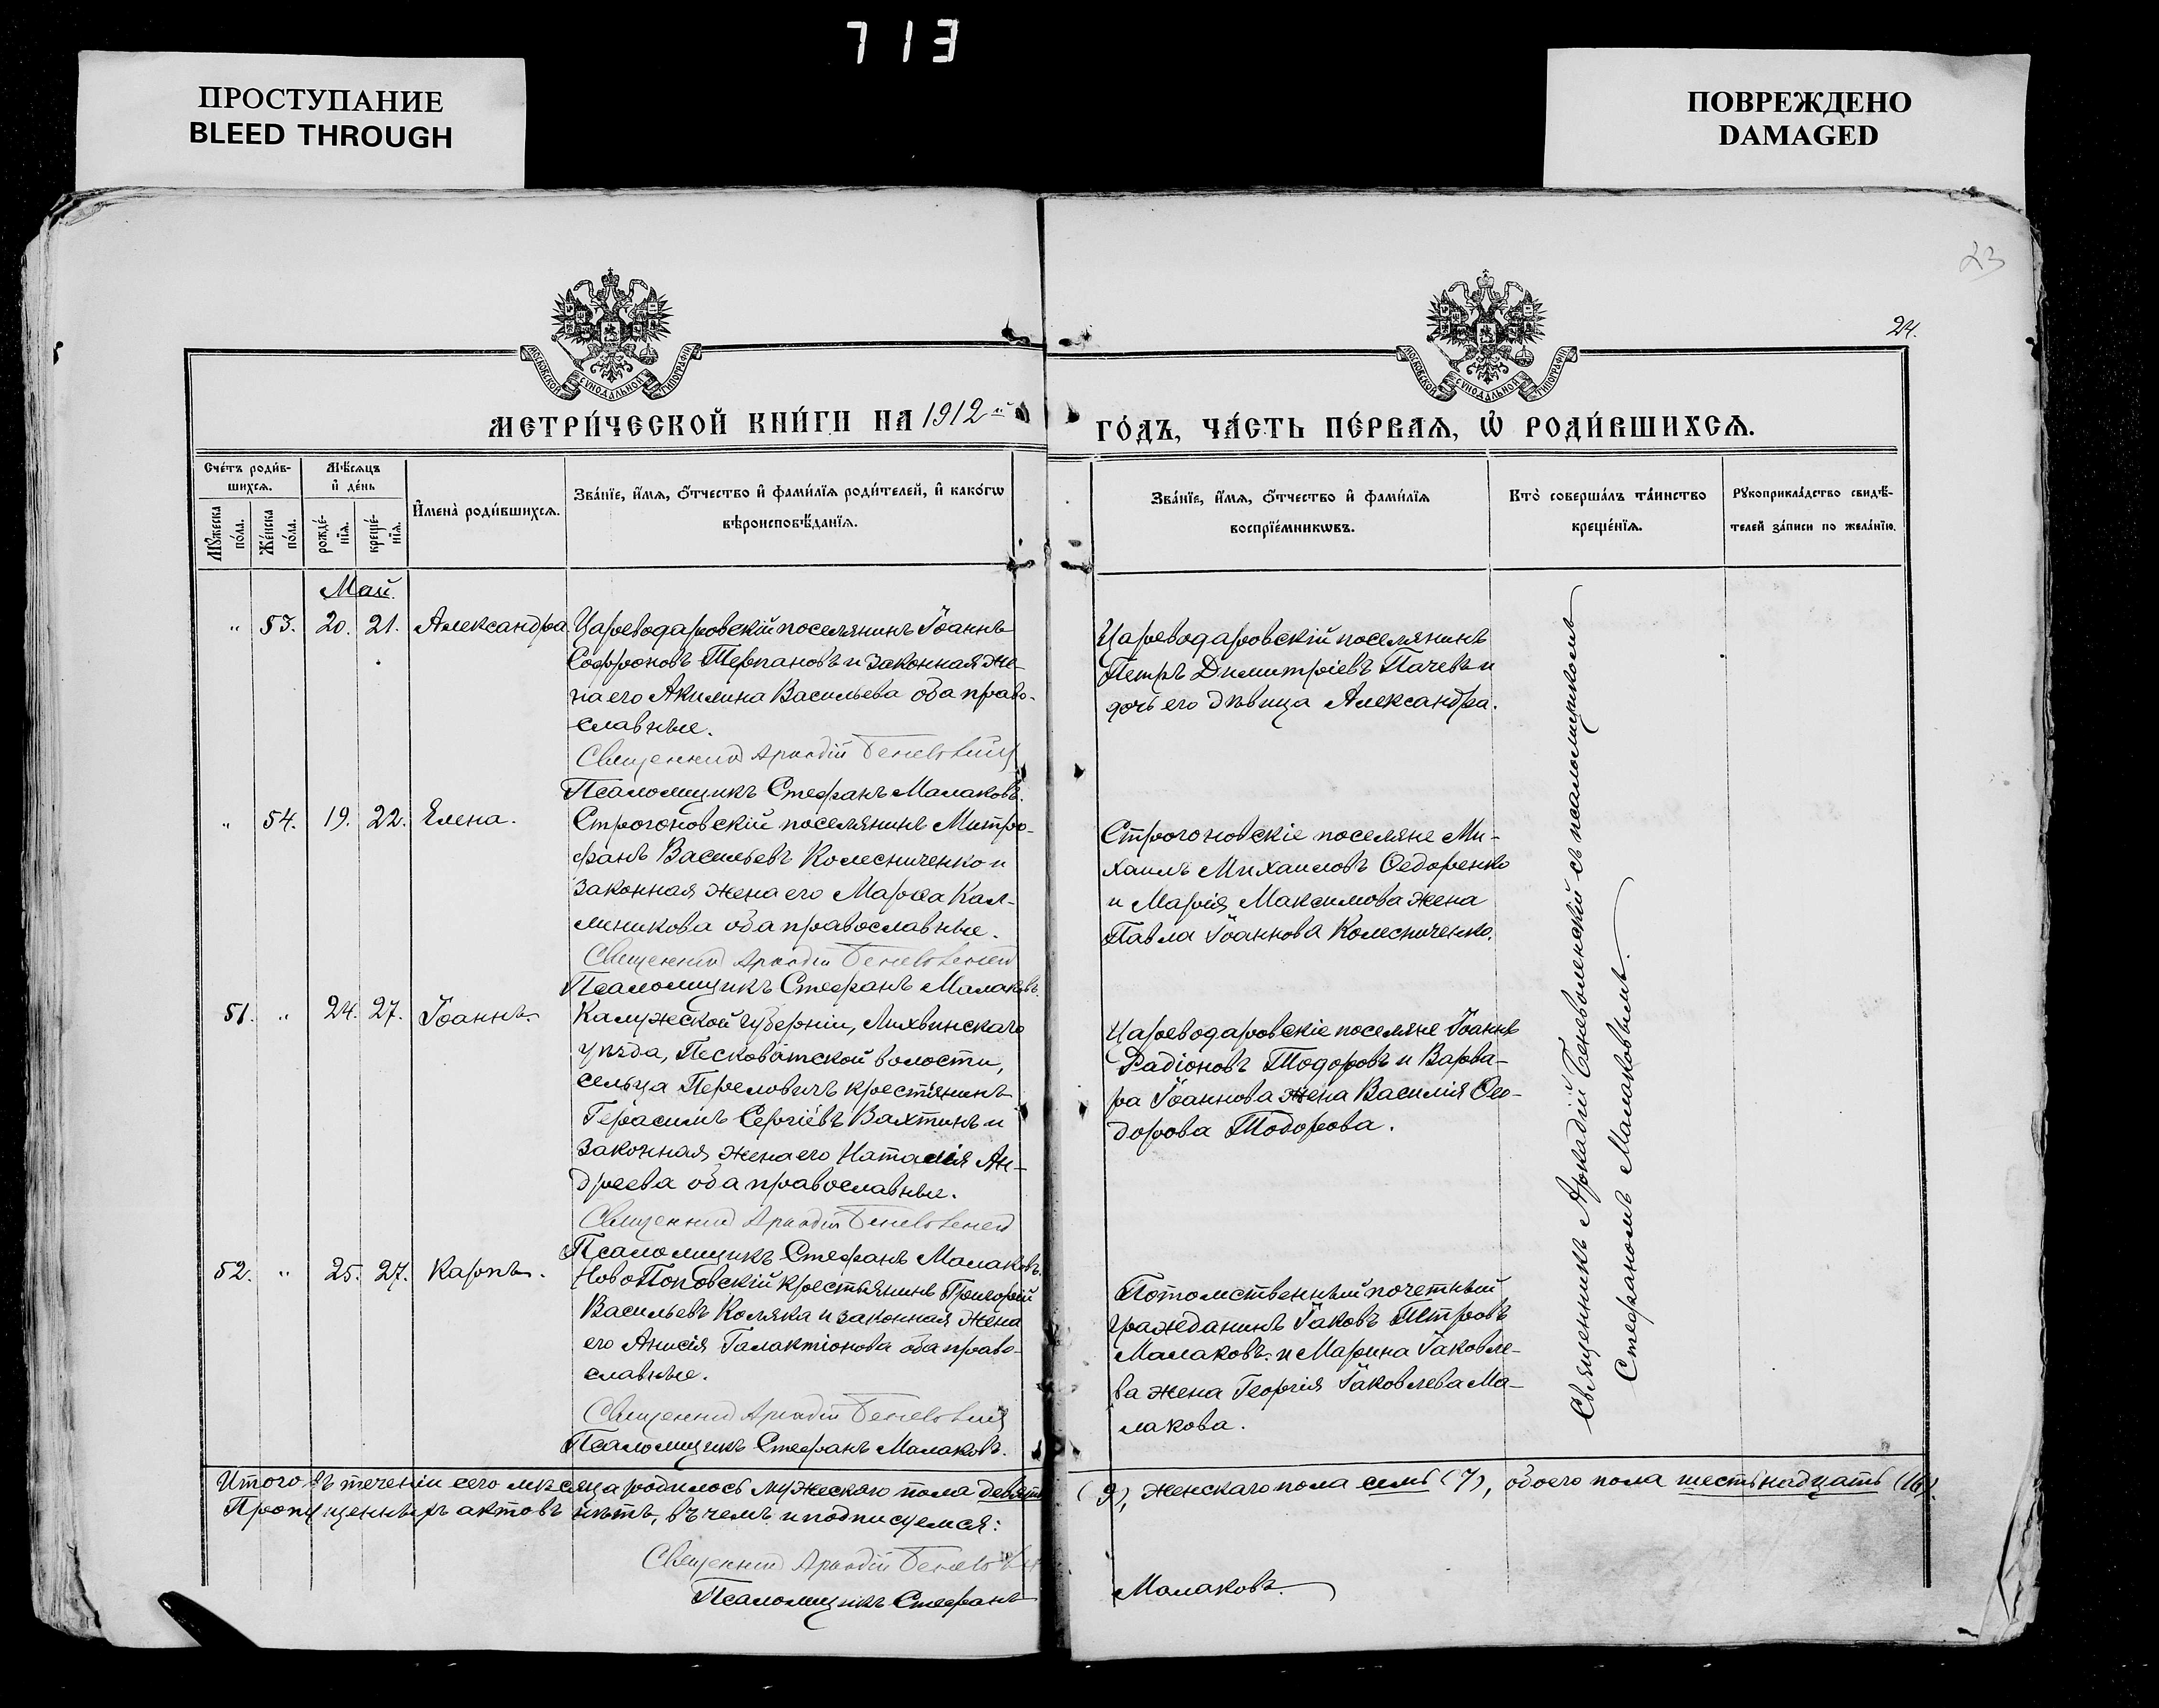 713
ПРОСТУПАНИЕ
BLEED THROUGH
ПОВРЕЖДЕНО
DAMAGED
23
24.
МОСКОВСКОЙ СУНОДАЛЬНОЙ ТИПОГРАФІИ
МОСКОВСКОЙ СУНОДАЛЬНОЙ ТИПОГРАФІИ
МЕТРИ́ЧЕСКОЙ КНИ́ГИ НА 1912 й
ГО́ДЪ, ЧА́СТЬ ПЕ́РВАѦ, Ѽ РОДИ́ВШИХСѦ.
Сче́тъ роди́в-
шихсѧ.
Мѣ́сѧцъ
и҆ де́нь
Мꙋ́жеска
по́ла.
Же́нска
по́ла.
рожде́-
нїѧ.
креще́-
нїѧ.
И҆мена̀ роди́вшихсѧ.
Зва́нїе, и҆́мѧ, ѻ҆́тчество и҆ фами́лїѧ роди́телей, и҆ како́гѡ
вѣроисповѣ́данїѧ.
Зва́нїе, и҆́мѧ, ѻ҆́тчество и҆ фами́лїѧ
воспрїе́мникѡвъ.
Кто̀ соверша́лъ та́инство
креще́нїѧ.
Рꙋкоприкла́дство свидѣ́-
телей за́писи по жела́нїю.
Май.
" 53. 20. 21. Александра. Цареводаровскій поселянинъ Іоаннъ
Софроновъ Терпановъ и законная же-
на его Акилина Васильева оба право-
славные.
Священник Аркадій
Псаломщикъ Стефанъ Малаковъ.
Цареводаровскій поселянинъ
Петръ Димитріевъ Пачевъ и
дочь его дѣвица Александра.
" 54. 19. 22. Елена. Строгоновскій поселянинъ Митро-
фанъ Васильевъ Колесниченко и
законная жена его Марѳа Кал-
линикова оба православные.
Священник Аркадій
Псаломщикъ Стефанъ Малаковъ.
Строгоновскіе поселяне Ми-
хаилъ Михаиловъ Ѳедоренко
и Марія Максимова жена
Павла Іоаннова Колесниченко.
51. " 24. 27. Іоаннъ. Калужской губерніи, Лихвинскаго
уѣзда, Песковатской волости,
сельца Переловичъ крестянинъ
Герасимъ Сергіевъ Вахтинъ и
законная жена его Наталія Ан-
дреева оба православные.
Священник Аркадій
Псаломщикъ Стефанъ Малаковъ.
Цареводаровскіе поселяне Іоаннъ
Радіоновъ Тодоровъ и Варва-
ра Іоаннова жена Василія Ѳео-
дорова Тодорова.
52. " 25. 27. Карпъ. НовоПоповскій крестьянинъ Григорій
Васильевъ Коляка и законная жена
его Анисія Галактіонова оба право-
славные.
Священник Аркадій
Псаломщикъ Стефанъ Малаковъ.
Потомственный почетный
гражданинъ Іаковъ Петровъ
Малаковъ и Марина Іаковле-
ва жена Георгія Іаковлева Ма-
лакова.
Священникъ Аркадій Беневоленскій съ псаломщикомъ
Стефаномъ Малаковымъ.
Итого въ теченіи сего мѣсяца родилось мужескаго пола девять (9), женскаго пола семь (7), обоего пола шестьнадцать (16).
Пропущенныхъ актовъ нѣтъ, въ чемъ и подписуемся:
Священник Аркадій
Псаломщикъ Стефанъ Малаковъ.